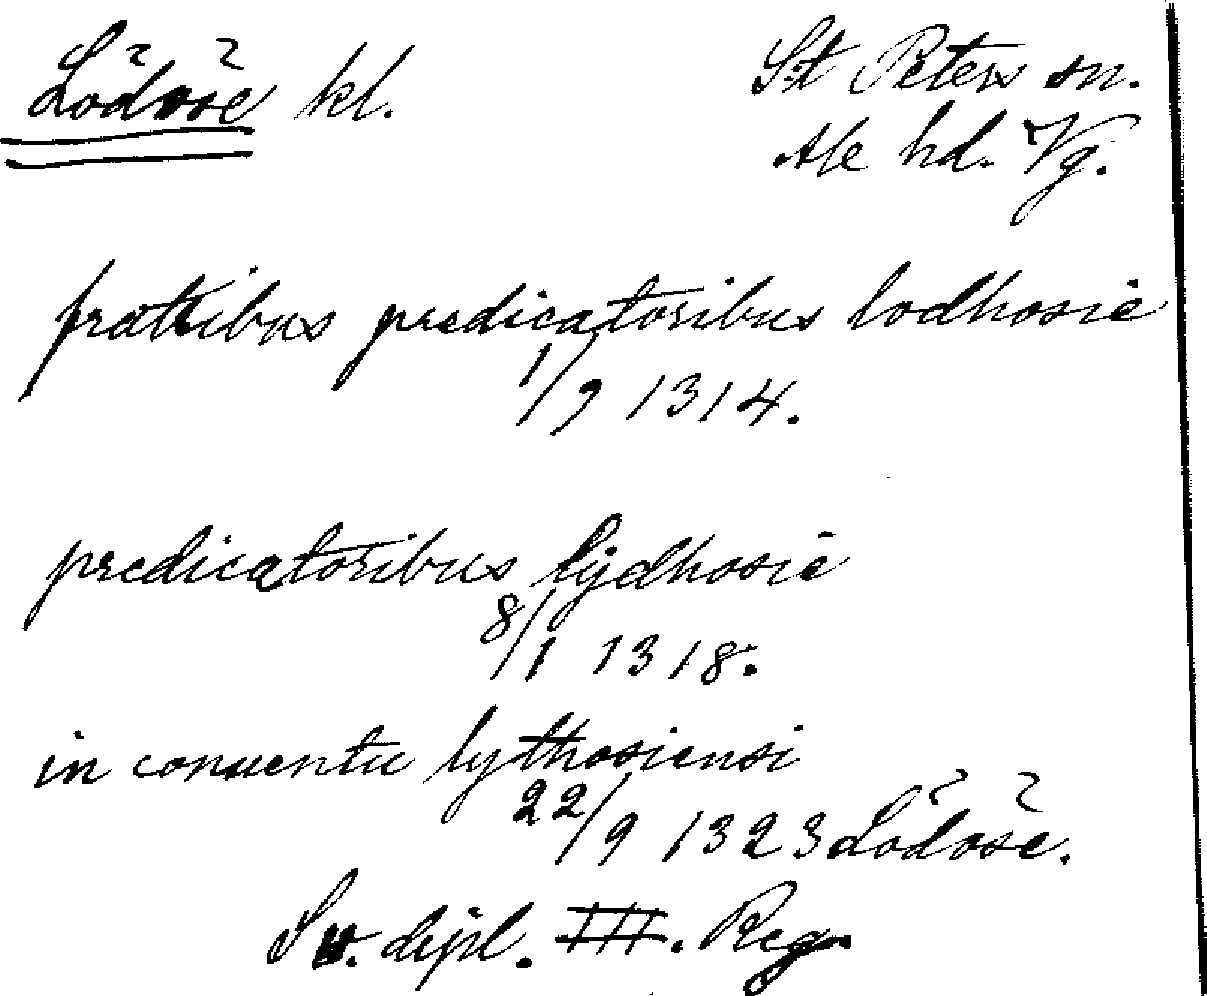 Lödöse kl.
St Peters sn.
Ale hd. Vg.
fratribus predicatoribus lodhosie
1/9 1314.
predicatoribus lÿdhosie
8/1 1318.
in conuentu lythosiensi
22/9 1323 Lödöse.
Sv. dipl. III. Reg.